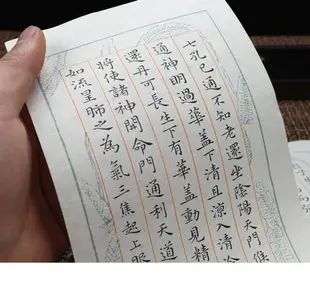 七孔已通不知老還坐陰陽天門候
通神明過華蓋下清且涼入清泠
還丹可長生下有華蓋動見精
將使諸神開命門通利天道
如流星肺之為氣三焦起上服